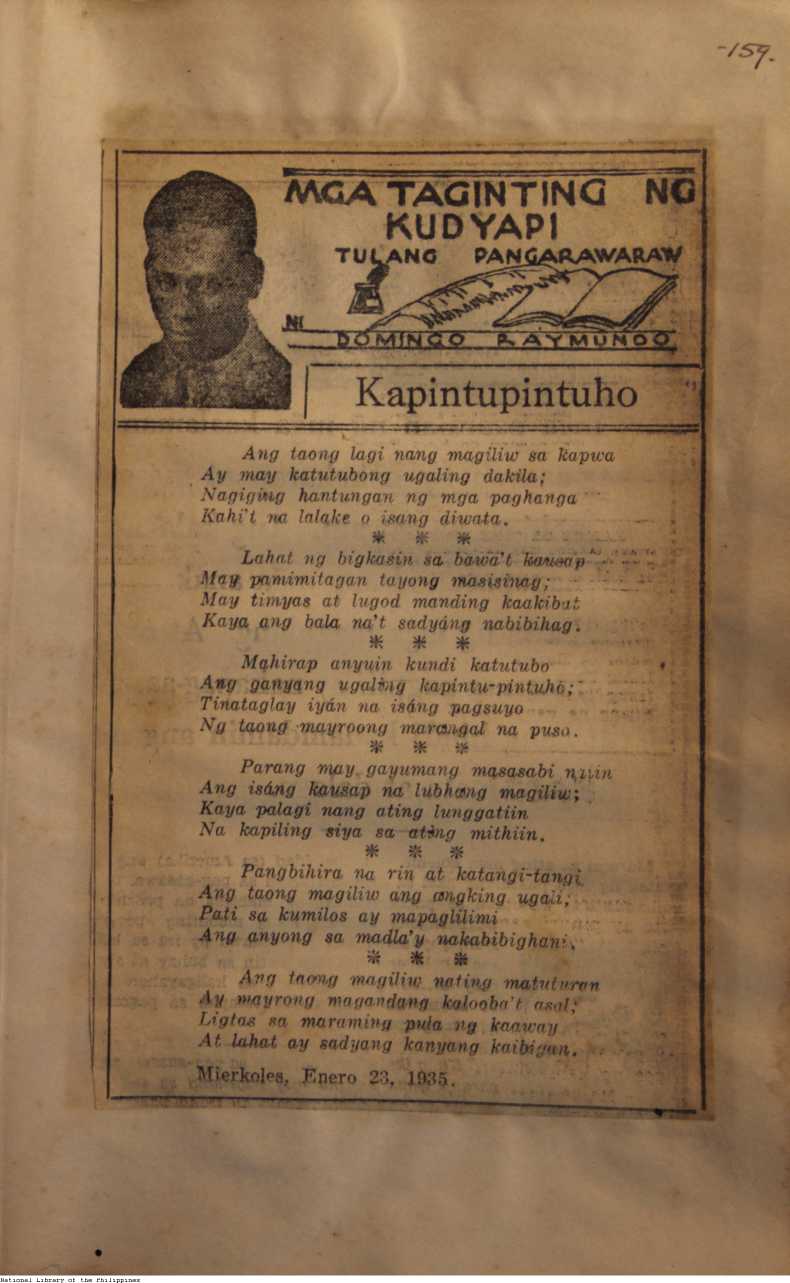 -159.
MGA TAGINTING NG
KUDYAPI
TULANG PANGARAWARAW
NI
DOMINGO RAYMUNDO
Kapintupintuho
Ang taong lagi nang magiliw sa kapwa
Ay may katutubong ugaling dakila;
Nagiging hantungan ng mga paghanga
Kahi't na lalake o isang diwata.
* * *
Lahat ng bigkasin sa bawa't kausap
May pamimitagan tayong masisinag;
May timyas at lugod manding kaakibat
Kaya ang bala na't sadyáng nabibihag.
* * *
Mahirap anyuin kundi katutubo
Ang ganyang ugaling kapintu-pintuho;
Tinataglay iyán na isáng pagsuyo
Ng taong mayroong marangal na puso.
* * *
Parang may gayumang masasabi natin
Ang isáng kausap na lubhang magiliw;
Kaya palagi nang ating lunggatiin
Na kapiling siya sa ating mithiin.
* * *
Pangbihira na rin at katangi-tangi
Ang taong magiliw ang angking ugali;
Pati sa kumilos ay mapaglilimi
Ang anyong sa madla'y nakabibighani.
* * *
Ang taong magiliw nating matuturan
Ay mayrong magandang kalooba't asal;
Ligtas sa maraming pula ng kaaway
At lahat ay sadyang kanyang kaibigan.
Mierkoles, Enero 23, 1935.
National Library of the Philippines